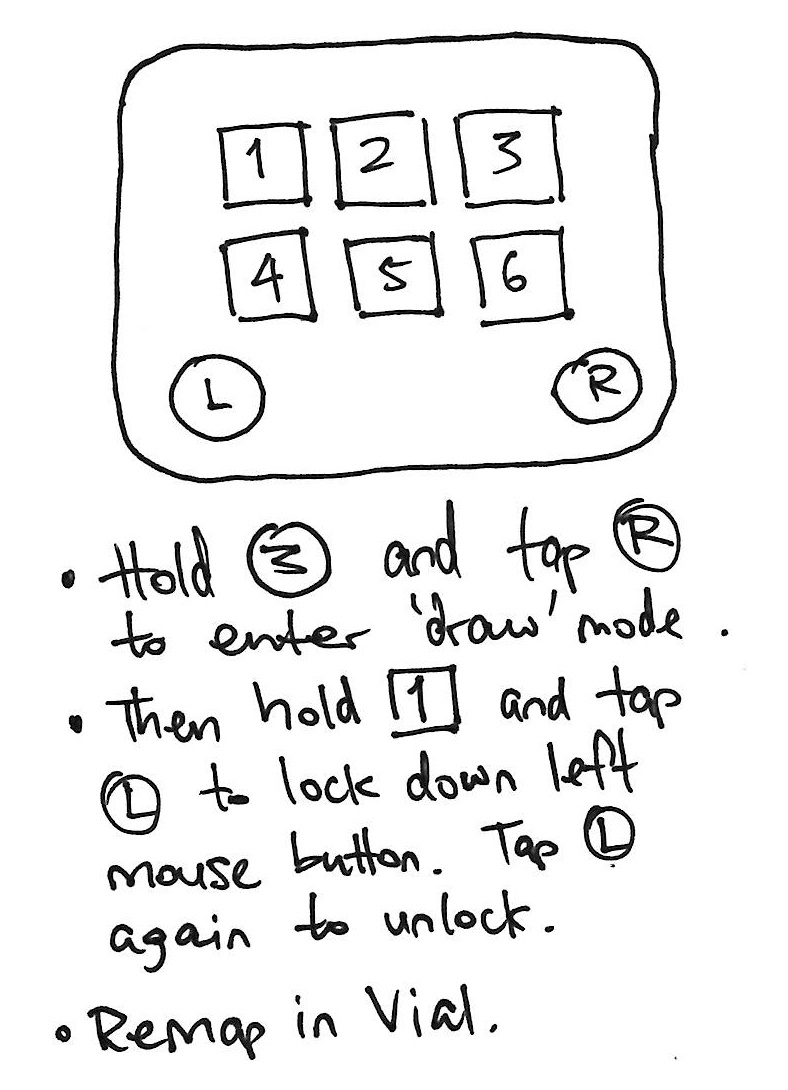 1 2 3
4 5 6
L R
• Hold 3 and tap R
to enter 'draw' mode.
• Then hold 1 and tap
L to lock down left
mouse button. Tap L
again to unlock.
• Remap in Vial.